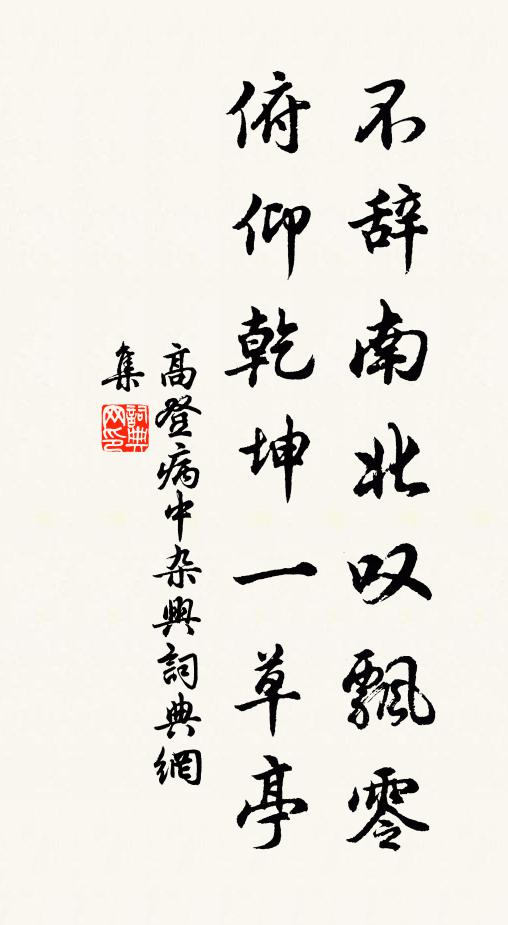 不辞南北叹飘零
俯仰乾坤一草亭
高登病中杂興詞典網
集
詞典网印